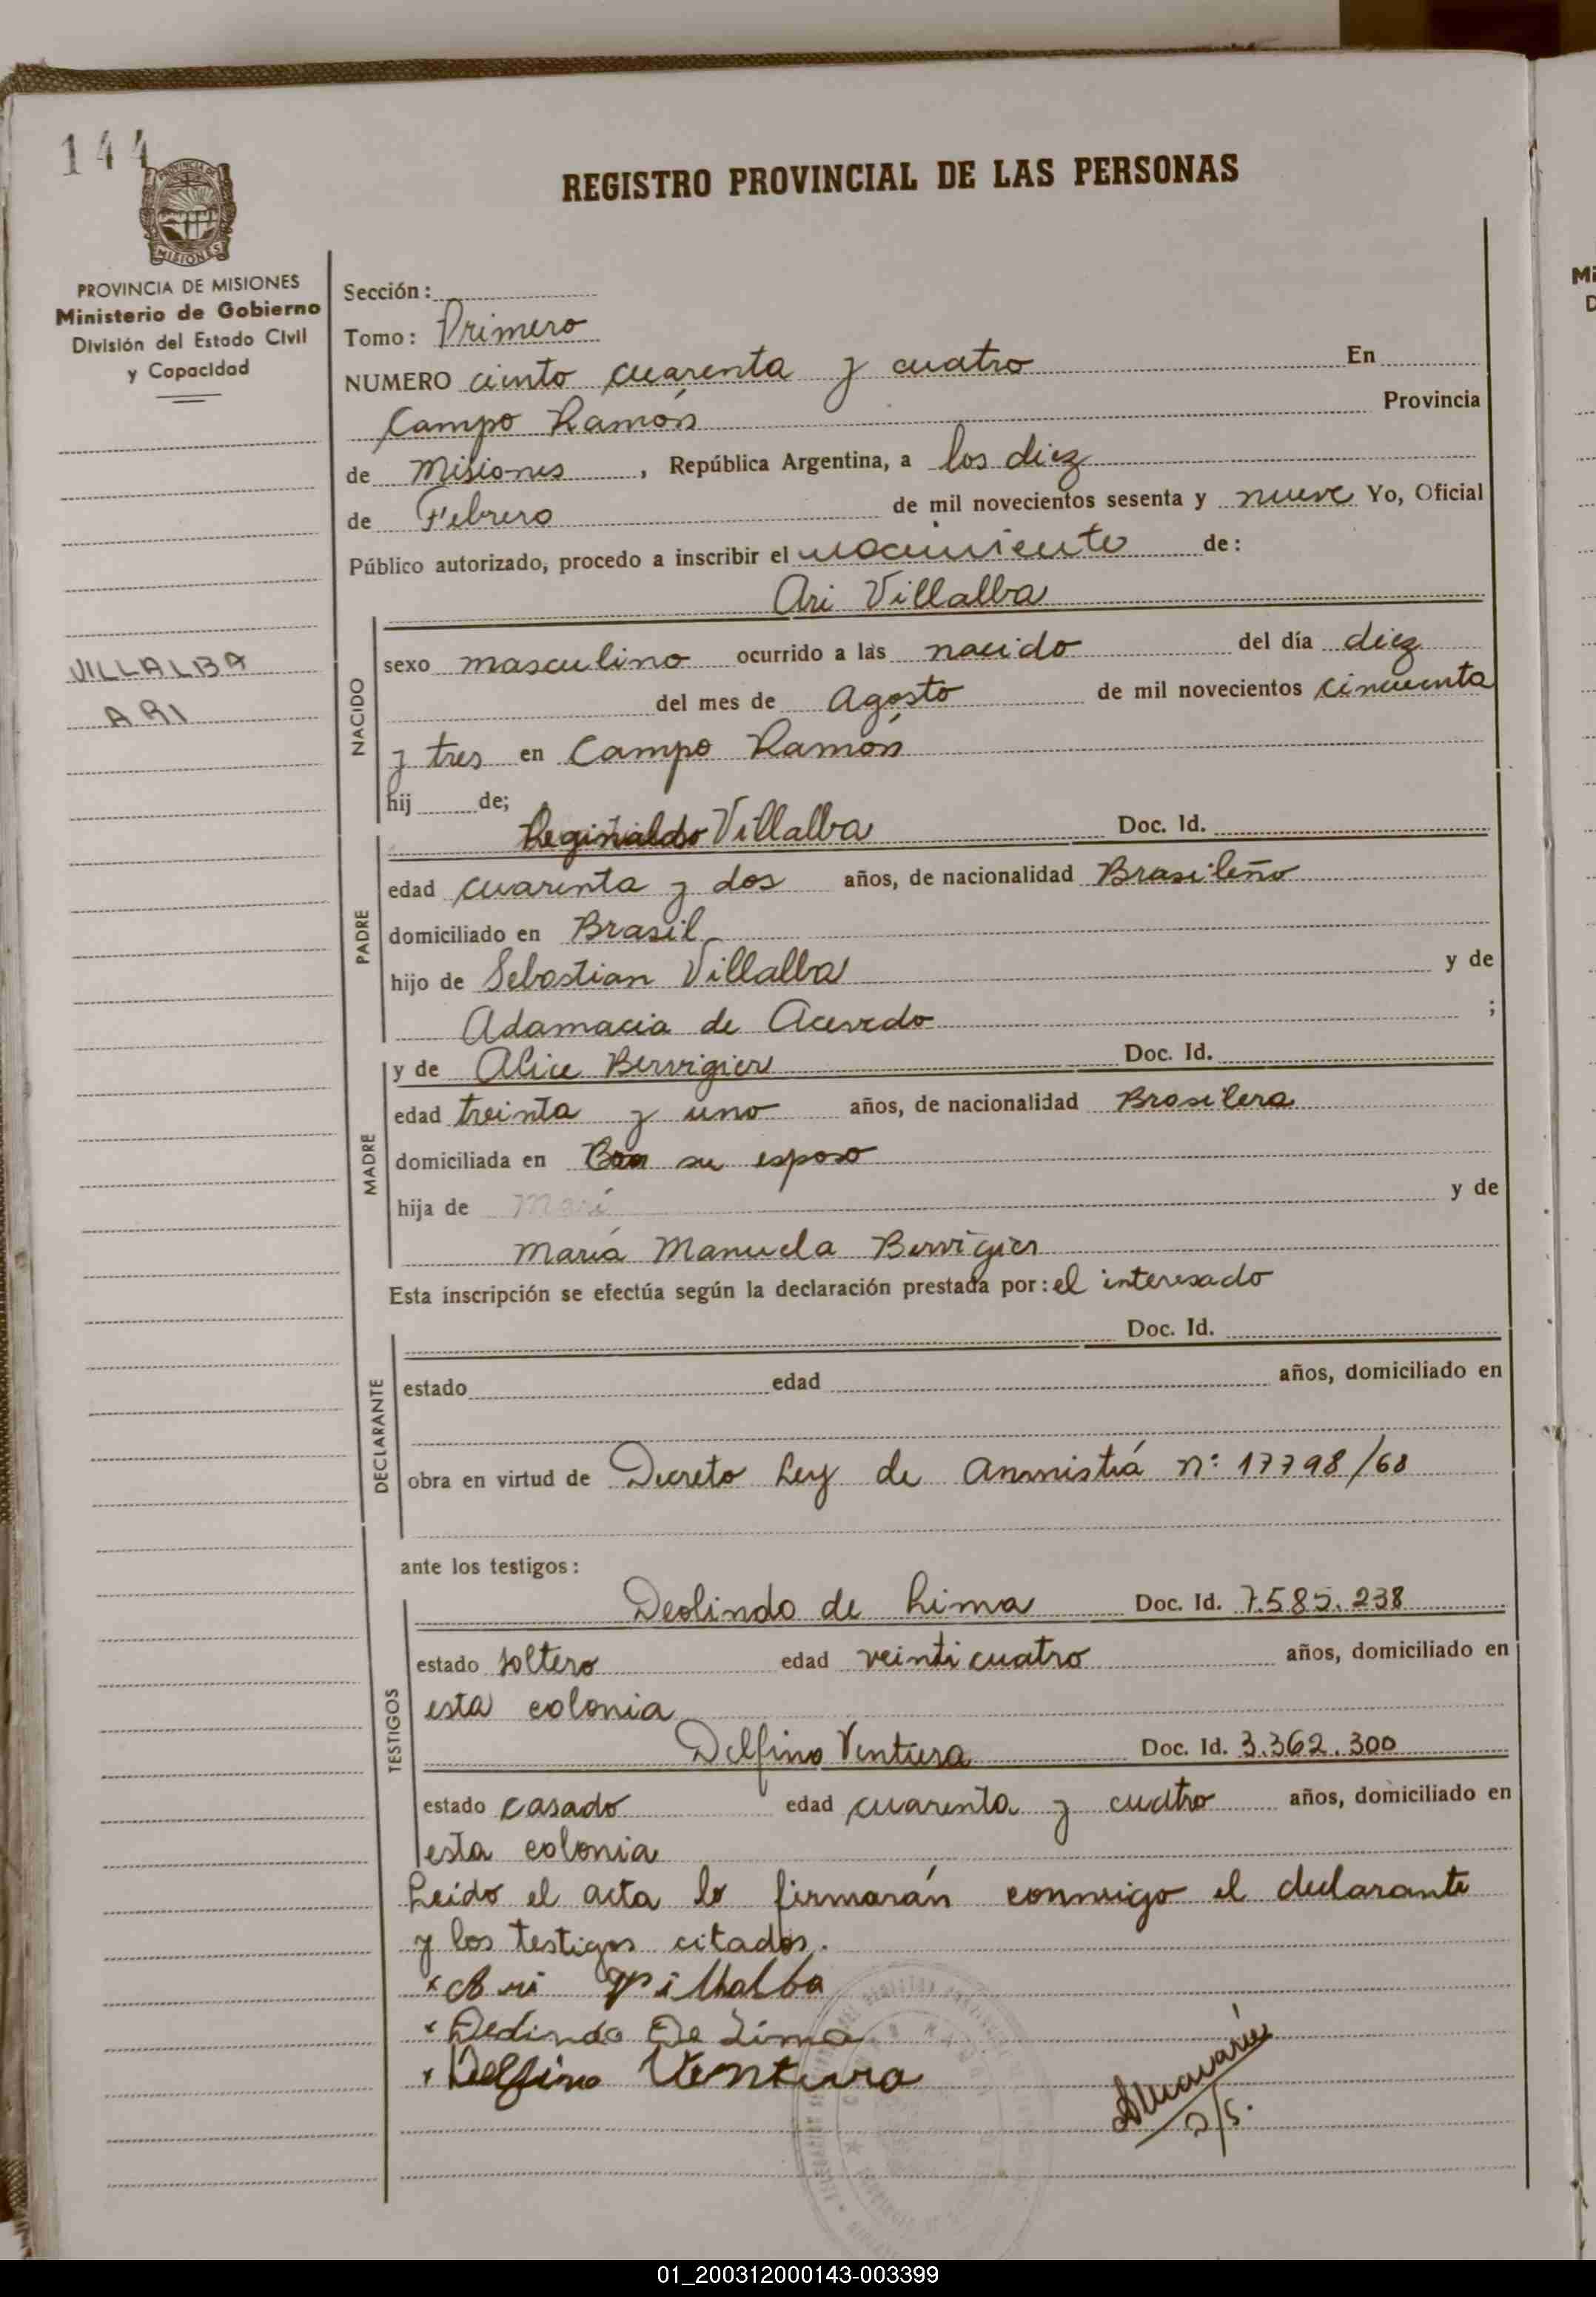 144
PROVINCIA DE
MISIONES
REGISTRO PROVINCIAL DE LAS PERSONAS
PROVINCIA DE MISIONES
Ministerio de Gobierno
División del Estado Civil
y Capacidad
VILLALBA
ARI
Sección:
Tomo: Primero
NUMERO ciento cuarenta y cuatro En
Campo Ramón Provincia
de Misiones, República Argentina, a los diez
de Febrero de mil novecientos sesenta y nueve Yo, Oficial
Público autorizado, procedo a inscribir el nacimiento de:
Ari Villalba
NACIDO
sexo masculino ocurrido a las nacido del día diez
del mes de Agosto de mil novecientos cincuenta
y tres en Campo Ramón
hij de;
PADRE
Reginaldo Villalba Doc. Id.
edad cuarenta y dos años, de nacionalidad Brasileño
domiciliado en Brasil
hijo de Sebastian Villalba y de
Adamacia de Acevedo ;
MADRE
y de Alice Bervigier Doc. Id.
edad treinta y uno años, de nacionalidad Brasilera
domiciliada en Con su esposo
hija de Mari y de
María Manuela Bervigier
Esta inscripción se efectúa según la declaración prestada por: el interesado
DECLARANTE
Doc. Id.
estado edad años, domiciliado en
obra en virtud de Decreto Ley de Amnistiá n: 17798/68
ante los testigos:
TESTIGOS
Deolindo de Lima Doc. Id. 7.585.238
estado soltero edad veinticuatro años, domiciliado en
esta colonia
Delfino Ventura Doc. Id. 3.362.300
estado casado edad cuarenta y cuatro años, domiciliado en
esta colonia
Leído el acta lo firmarán conmigo el declarante
y los testigos citados.
x Ari Villalba
x Deolindo De Lima
x Delfino Ventura
Mi
D
01_200312000143-003399